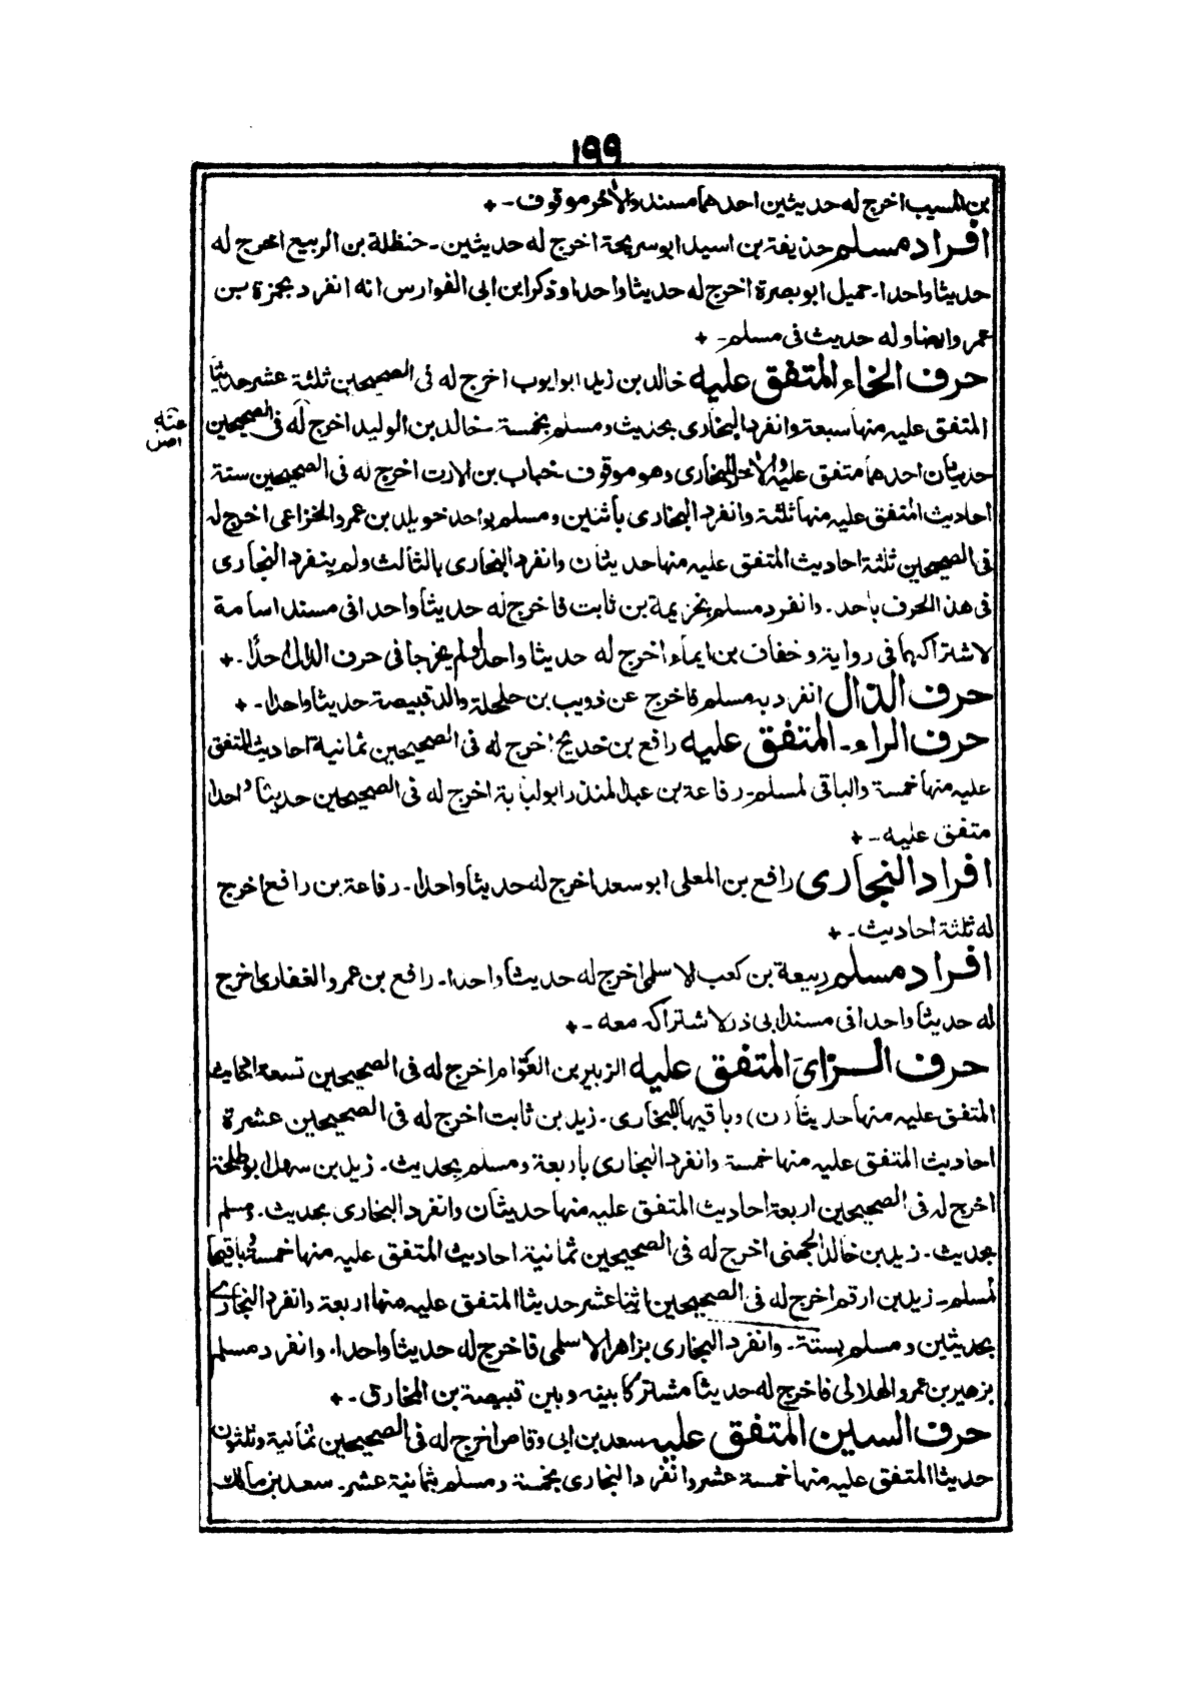 ١٩٩
بن المسيب اخرج له حديثين احدهما مسند والآخر موقوف ـ +
افراد مسلم حذيفة بن اسيد ابو سريحة اخرج له حديثين ـ حنظلة بن الربيع اخرج له
حديثا واحدا ـ حميل ابو بصرة اخرج له حديثا واحدا وذكر ابن ابى الفوارس انه انفرد بحمزة بن
عمرو ايضا وله حديث فى مسلم ـ +
حرف الخاء المتفق عليه خالد بن زيد ابو ايوب اخرج له فى الصحيحين ثلثة عشر حديثا
المتفق عليه منها سبعة وانفرد البخارى بحديث ومسلم بخمسة ـ خالد بن الوليد اخرج له فى الصحيحين
حديثان احدهما متفق عليه والآخر للبخارى وهو موقوف خباب بن الارت اخرج له فى الصحيحين ستة
احاديث المتفق عليه منها ثلثة وانفرد البخارى باثنين ومسلم بواحد خويلد بن عمرو الخزاعى اخرج له
فى الصحيحين ثلثة احاديث المتفق عليه منها حديثان وانفرد البخارى بالثالث ولم ينفرد البخارى
فى هذا الحرف باحد ـ وانفرد مسلم بخزيمة بن ثابت فاخرج له حديثا واحدا فى مسند اسامة
لاشتراكهما فى رواية وخفاف بن ايماء اخرج له حديثا واحدا ولم يخرجا فى حرف الدال احدًا ـ +
حرف الذال انفرد به مسلم فاخرج عن ذويب بن حلحلة والد قبيصة حديثا واحدا ـ +
حرف الراء ـ المتفق عليه رافع بن خديج اخرج له فى الصحيحين ثمانية احاديث المتفق
عليه منها خمسة والباقى لمسلم ـ رفاعة بن عبد المنذر ابو لبابة اخرج له فى الصحيحين حديثا واحدا
متفق عليه ـ +
افراد البخارى رافع بن المعلى ابو سعد اخرج له حديثا واحدا ـ رفاعة بن رافع اخرج
له ثلثة احاديث ـ +
افراد مسلم ربيعة بن كعب الاسلمى اخرج له حديثا واحدا ـ رافع بن عمرو الغفارى اخرج
له حديثا واحدا فى مسند ابى ذر لاشتراكه معه ـ +
حرف الزاى المتفق عليه الزبير بن العوّام اخرج له فى الصحيحين تسعة احاديث
المتفق عليه منها حديثا (ن) وباقيها للبخارى ـ زيد بن ثابت اخرج له فى الصحيحين عشرة
احاديث المتفق عليه منها خمسة وانفرد البخارى باربعة ومسلم بحديث ـ زيد بن سهل ابو طلحة
اخرج له فى الصحيحين اربعة احاديث المتفق عليه منها حديثان وانفرد البخارى بحديث ـ ومسلم
بحديث ـ زيد بن خالد الجهنى اخرج له فى الصحيحين ثمانية احاديث المتفق عليه منها خمسة وباقيها
لمسلم ـ زيد بن ارقم اخرج له فى الصحيحين اثنا عشر حديثا المتفق عليه منها اربعة وانفرد البخارى
بحديثين ومسلم بستة ـ وانفرد البخارى بزاهر الاسلمى فاخرج له حديثا واحدا ـ وانفرد مسلم
بزهير بن عمرو الهلالى فاخرج له حديثا مشتركا بينه وبين قبيصة بن المخارق ـ +
حرف السين المتفق عليه سعد بن ابى وقاص اخرج له فى الصحيحين ثمانية وثلثون
حديثا المتفق عليه منها خمسة عشر وانفرد البخارى بخمسة ومسلم بثمانية عشر ـ سعد بن مالك